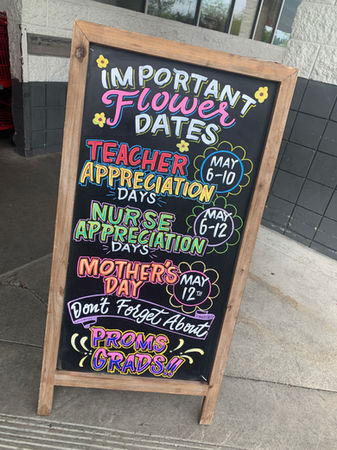 IMPORTANT
Flower
DATES
TEACHER
APPRECIATION
DAYS
MAY
6-10
NURSE
APPRECIATION
DAYS
MAY
6-12
MOTHER'S
DAY
MAY
12th
Don't Forget About
PROMS
GRADS!!